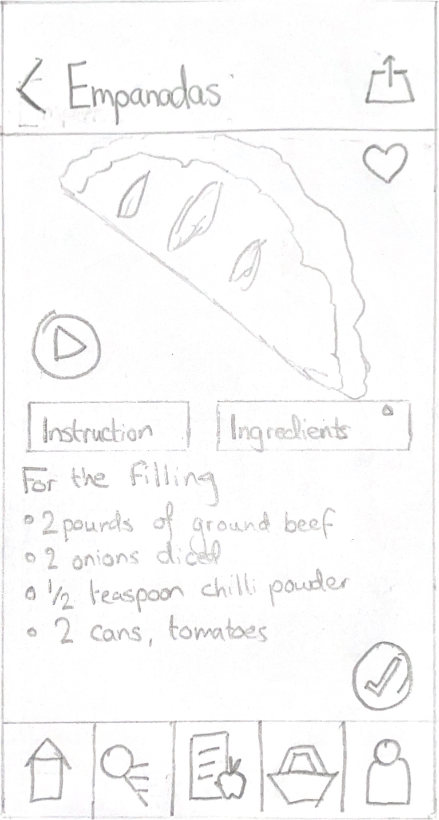 Empanadas
Instruction
Ingredients
For the filling
2 pounds of ground beef
2 onions diced
1/2 teaspoon chilli powder
2 cans, tomatoes